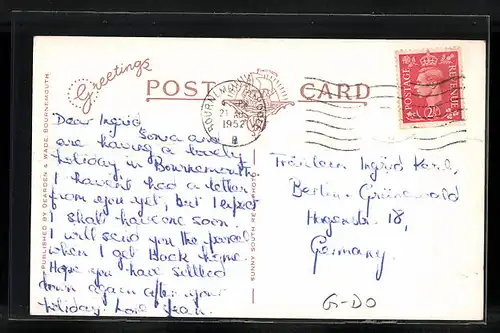 Greetings
POST CARD
BOURNEMOUTH
21 AUG
1952
POSTAGE REVENUE
2½
PUBLISHED BY DEARDEN & WADE, BOURNEMOUTH.
SUNNY SOUTH
Dear Ingrid,
Sonia and I
are having a lovely
holiday in Bournemouth.
I haven't had a letter
from you yet, but I expect
I shall have one soon.
I will send you the parcel
when I get back home.
Hope you have settled
down again after your
holiday. Love Jean.
Fräulein Ingrid
Berlin - Grünewald
18,
Germany.
G-DO